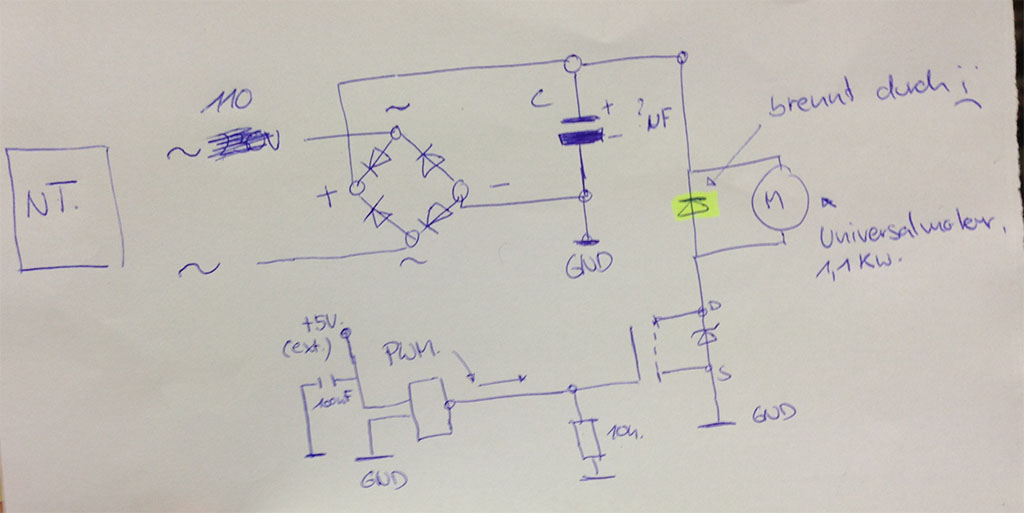 110
~
~
NT.
~
+
-
~
C
+
-
? NF
GND
brennt durch
M
Universalmotor,
1,1 KW.
+5V.
(ext.)
100nF
PWM.
GND
10k.
D
S
GND